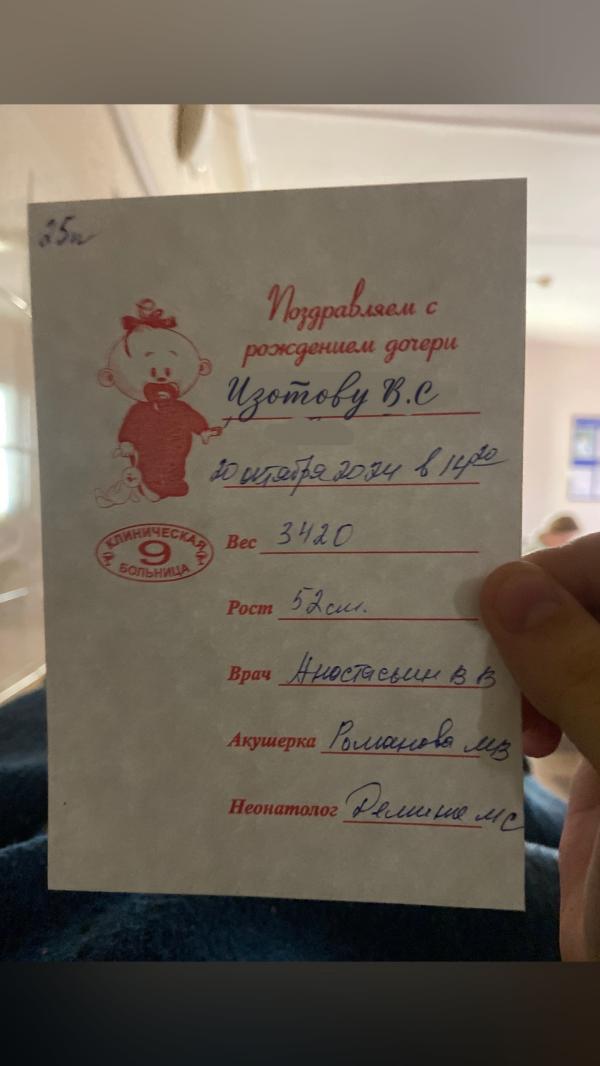 25п
Поздравляем с
рождением дочери
Изотову В.С
20 октября 2024 в 14 20
КЛИНИЧЕСКАЯ
9
БОЛЬНИЦА
Вес 3420
Рост 52 см.
Врач Анастасьин В В
Акушерка Романова МВ
Неонатолог Демина МС